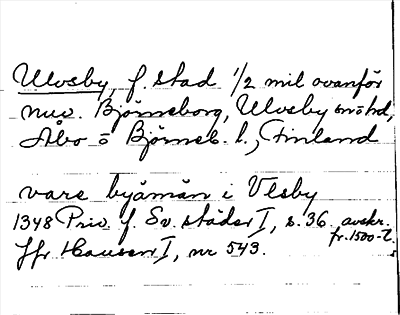 Ulvsby, f. stad 1/2 mil ovanför
nuv. Björneborg, Ulvsby sn o hd,
Åbo o Björneb. l., Finland
vare byamän i Vlsby
1348 Priv. f. Sv. städer I, s. 36. avskr.
fr. 1500-t.
Jfr Hausen I, nr 543.